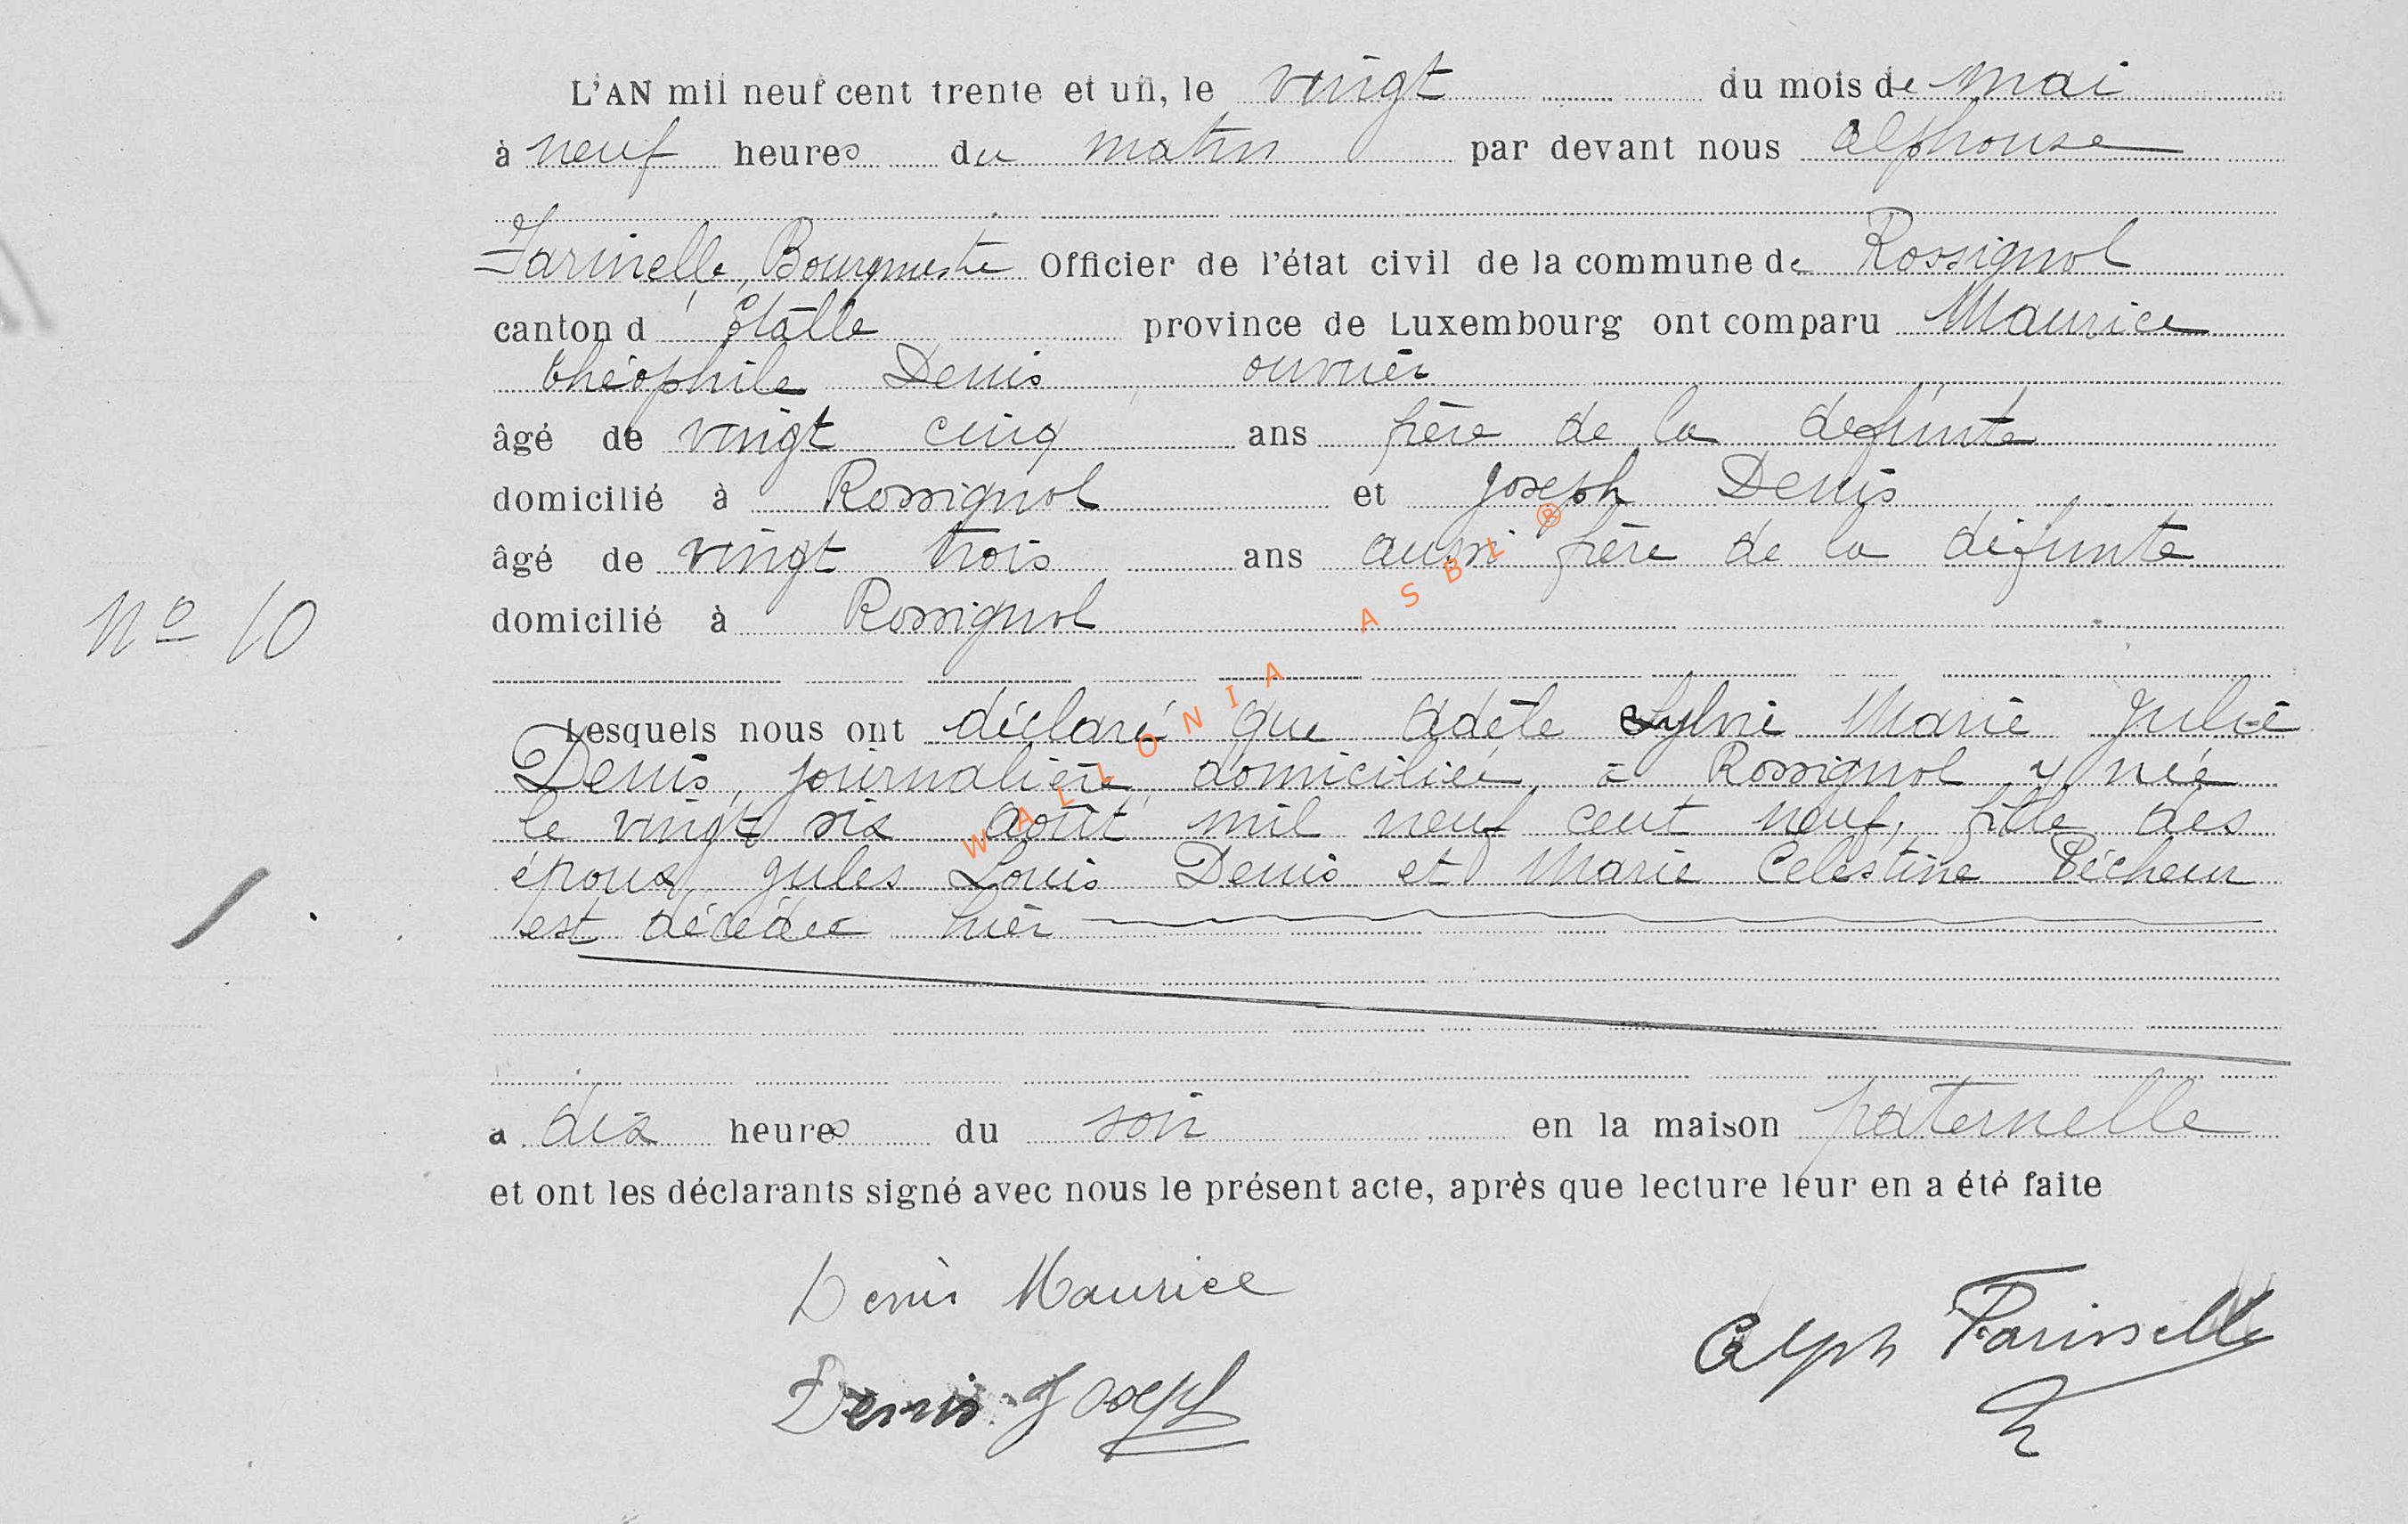 L'AN mil neuf cent trente et un, le vingt du mois de mai
à neuf heures du matin par devant nous Alphonse
Farinelle, Bourgmestre Officier de l'état civil de la commune de Rossignol
canton d'Etalle province de Luxembourg ont comparu Maurice
théophile Denis, ouvrier
âgé de vingt cinq ans frère de la défunte
domicilié à Rossignol et Joseph Denis
âgé de vingt trois ans aussi frère de la défunte
N° 10
domicilié à Rossignol
Lesquels nous ont déclaré que Adèle Sylvie Marie Julie
Denis, journalière, domiciliée à Rossignol y née
le vingt six août mil neuf cent neuf, fille des
époux Jules Louis Denis et Marie Célestine Pécheur
est décédée hier
à dix heures du soir en la maison paternelle
et ont les déclarants signé avec nous le présent acte, après que lecture leur en a été faite
Denis Maurice
Alph Farinelle
Denis Joseph
WALLONIA ASBL ®